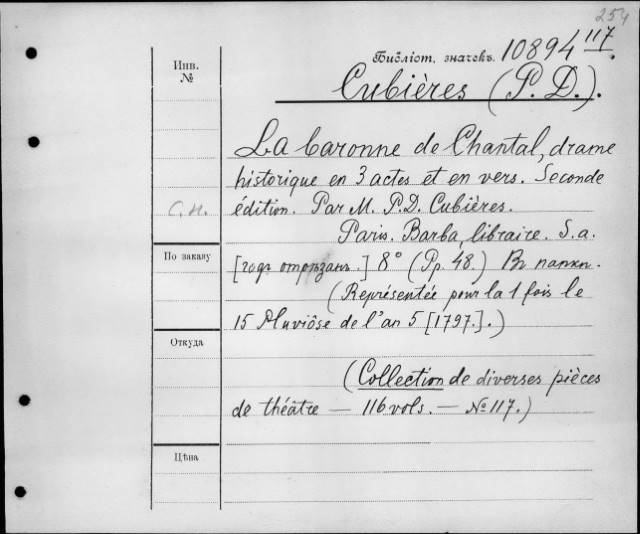 254
Инв.
№
Библіот. значекъ. 10894 117.
Cubières (P. D.).
La baronne de Chantal, drame
historique en 3 actes et en vers. Seconde
С.н.
édition. Par M. P.D. Cubières.
Paris. Barba, libraire. S.a.
По заказу
[годъ отрѣзанъ.] 8° (Pp. 48.) Въ папкн.
(Représentée pour la 1 fois le
15 Pluviôse de l'an 5 [1797.].)
Откуда
(Collection de diverses pièces
de théâtre — 116 vols. — № 117.)
Цѣна